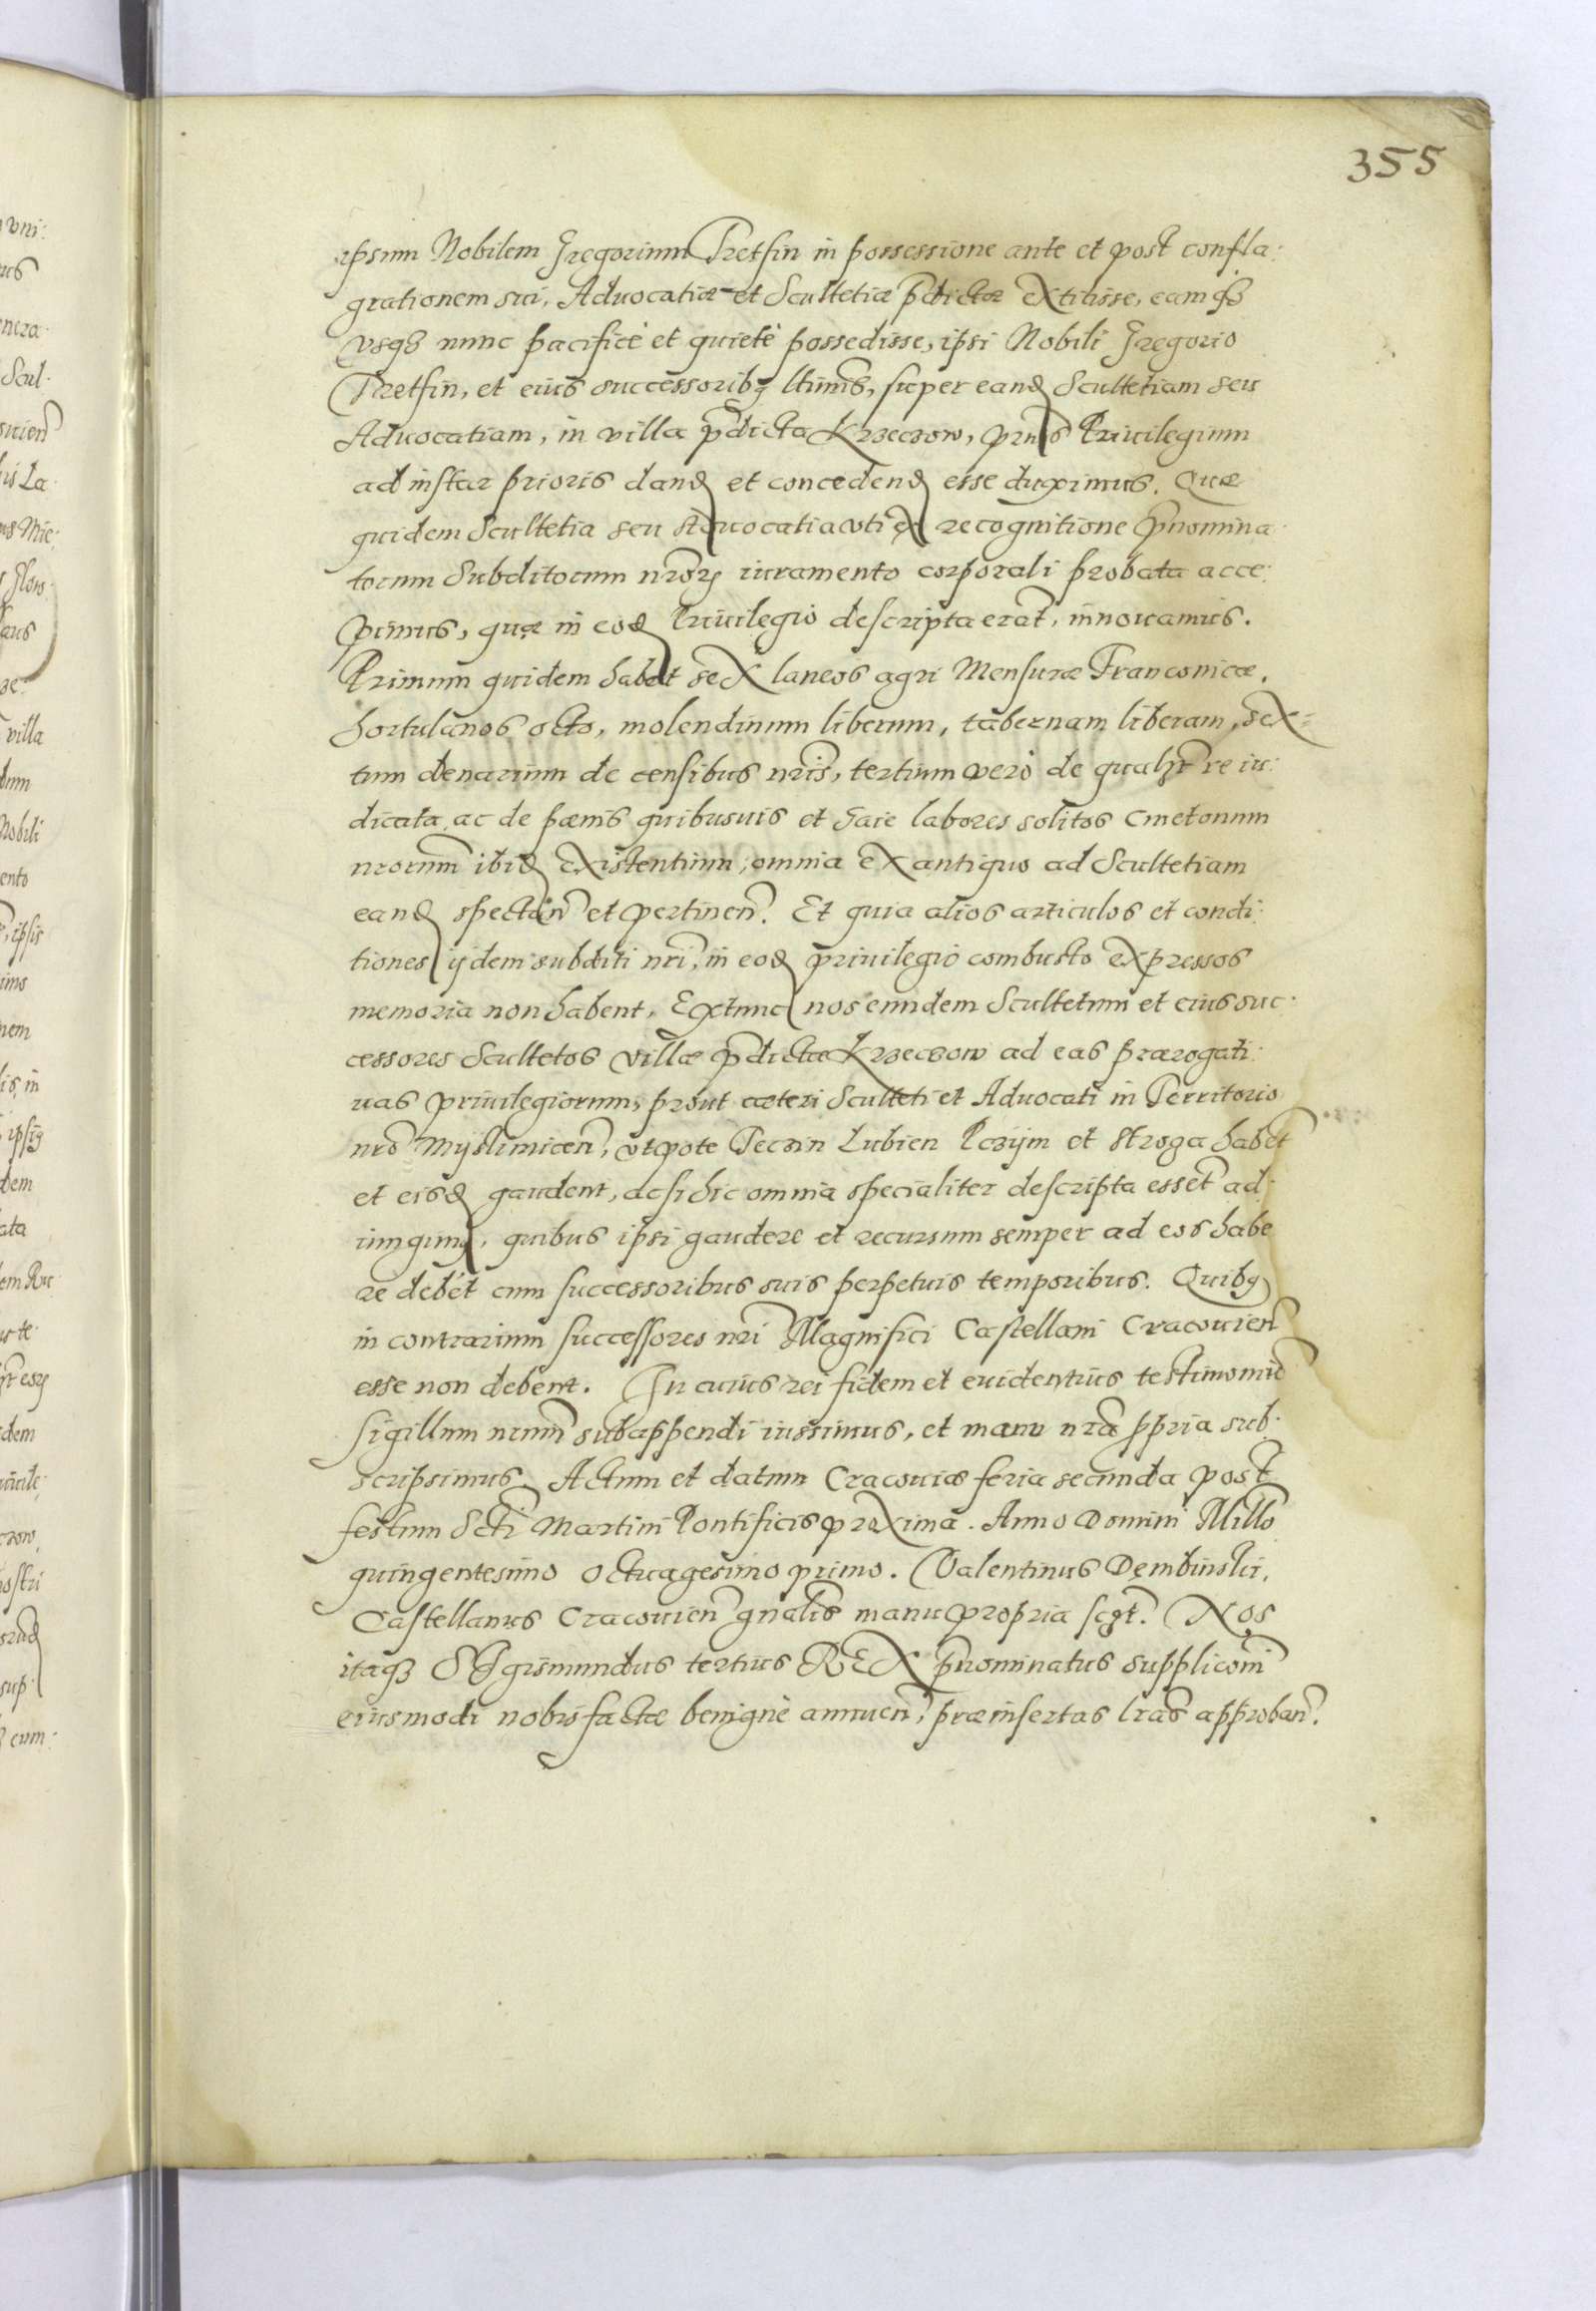 355
ipsum Nobilem Gregorium Tretsin in possessione ante et post confla:
grationem sui, Advocatiæ et Scultetiæ p̃dictæ extitisse, eamq3
vsq3 nunc pacificè et quietè possedisse, ipsi Nobili Gregorio
Tretsin, et eius successorib9 ltimis, super eand Scultetiam seu
Aduocatiam, in villa p̃dicta Krzeczow, p̃ns Priuilegium
ad instar prioris dand et concedend esse duximus. Quæ
quidem Scultetia seu Aduocatia vti ex recognitione p̃nomina
torum Subditorum nrõrꝝ iuramento corporali probata acce:
pimus, quæ in eod Priuilegio descripta erat̃, innouamus.
Primum quidem habet sex laneos agri Mensuræ Franconicæ,
hortulanos octo, molendinum liberum, tabernam liberam, sex=
tum denarium de censibus nrĩs, tertium verò de qualr̃t re iu:
dicata, ac de pænis quibusuis et labores solitos Cmetonum
nrorum̃ ibid existentium, omnia ex antiquo ad Scultetiam
eand spectan̄ et pertinen̄. Et quia alios articulos et condi:
tiones ijdem subditi nrĩ, in eod priuilegio combusto expressos
memoria non habent, Extunc nos eundem Scultetum et eius suc:
cessores Scultetos villæ p̃dictæ Krzeczow ad eas prærogati:
uas priuilegiorum, prout cæteri Sculteti et Aduocati in Territorio
nrõ Myslimicen̄, vtpote Peczin Lubien Pczijm et Stroga habet̃
et eisd gaudent, acsi hic omnia specialiter descripta esset̃ ad:
iungim9, quibus ipsi gaudere et recursum semper ad eos habe
re debet̃ cum successoribus suis perpetuis temporibus. Quib9
in contrarium successores nrĩ Magnifici Castellani Cracouien̄
esse non debent. In cuius rei fidem et euidentius testimoniũ
sigillum nrum̃ subappendi iussimus, et manu nrã ppria sub:
scripsimus. Actum et datum Cracouiæ feria secunda post
festum Sctĩ Martini Pontificis proxima. Anno Domini Millõ
quingentesimo octuagesimo primo. Valentinus Dembinski,
Castellanus Cracouien̄ gn̄alis manu propria sc̃pt. Nos
itaq3 SIgismundus tertius REX p̃nominatus supplicoñi
eiusmodi nobis factæ benignè annuen̄, præinsertas lrãs approban̄.
vni:
Scul:
La
villa
Nobili
ipsis
nem
in
dem
cum: